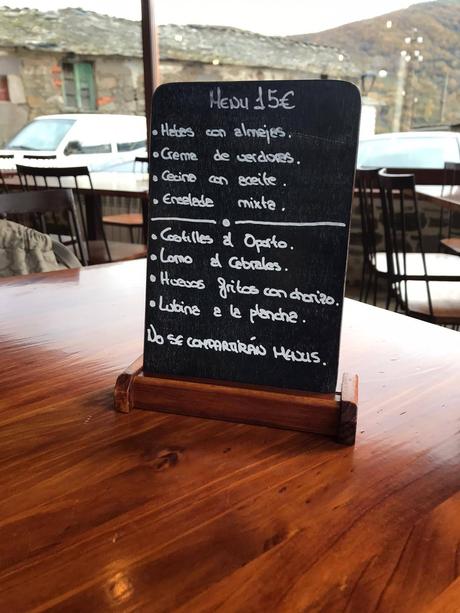 MENU 15€
• Habas con almejas.
• Crema de verduras.
• Cecina con aceite.
• Ensalada mixta.
• Costillas al Oporto.
• Lomo al Cabrales.
• Huevos fritos con chorizo.
• Lubina a la plancha.
NO SE COMPARTIRÁN MENUS.